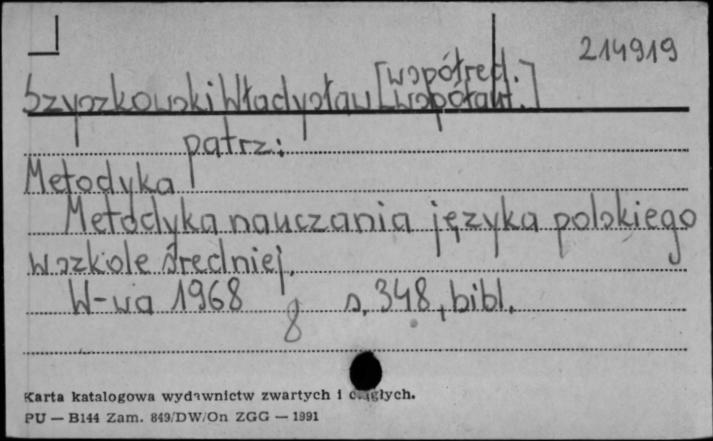 214919
[współred.
Szyszkowski Władysław współaut.]
patrz:
Metodyka
Metodyka nauczania języka polskiego
w szkole średniej.
W-wa 1968 s. 348, bibl.
8
Karta katalogowa wydawnictw zwartych i ciągłych.
PU — B144 Zam. 849/DW/On ZGG — 1991